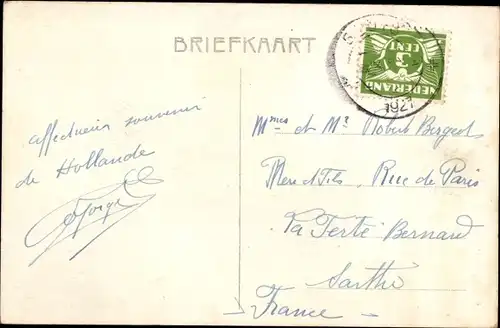 BRIEFKAART
5
CENT
NEDERLAND
1927
affectueux souvenir
de Hollande
Mmes et Mr Robert Bergeot
Mere et Fils, Rue de Paris
La Ferté Bernard
Sarthe
France